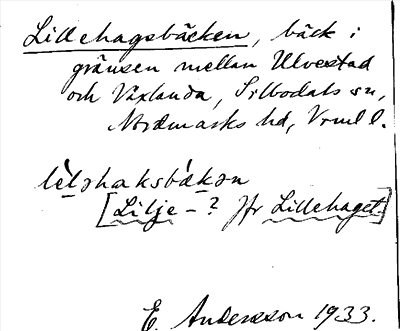 Lillehagsbäcken, bäck i
gränsen mellan Ulvestad
och Växlanda, Silbodals sn,
Nordmarks hd, Vrml l.
lìləhaksbákən
[Lilje-? Jfr Lillehaget.]
E. Andersson 1933.